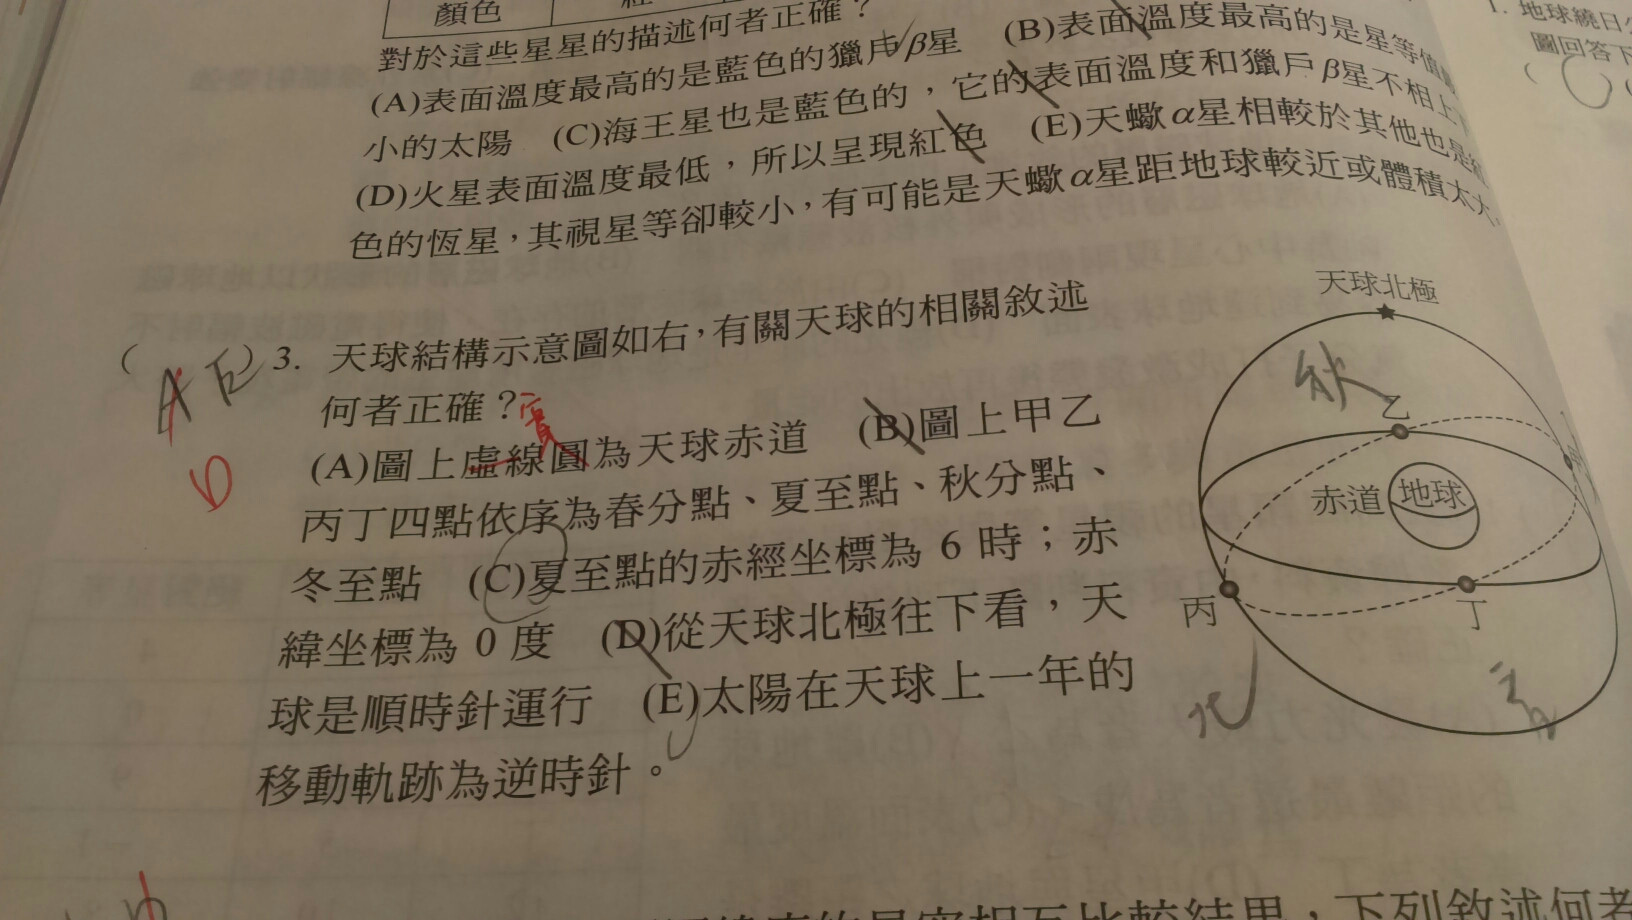 顏色
對於這些星星的描述何者正確？
(A)表面溫度最高的是藍色的獵戶β星 (B)表面溫度最高的是星等值
小的太陽 (C)海王星也是藍色的，它的表面溫度和獵戶β星不相上
(D)火星表面溫度最低，所以呈現紅色 (E)天蠍α星相較於其他也是
色的恆星，其視星等卻較小，有可能是天蠍α星距地球較近或體積太大，
( ) 3. 天球結構示意圖如右，有關天球的相關敘述
A E
D
何者正確？
實
(A)圖上虛線圓為天球赤道 (B)圖上甲乙
丙丁四點依序為春分點、夏至點、秋分點、
冬至點 (C)夏至點的赤經坐標為 6 時；赤
緯坐標為 0 度 (D)從天球北極往下看，天
球是順時針運行 (E)太陽在天球上一年的
移動軌跡為逆時針。
天球北極
秋
乙
甲
赤道
地球
丙
丁
1. 地球繞日
圖回答下
(
下列敘述何者